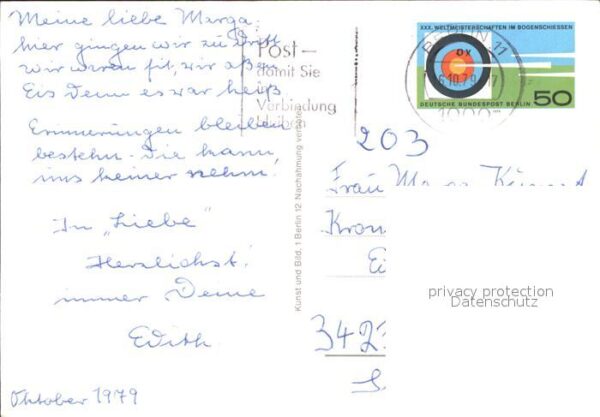 Meine liebe Marga:
hier gingen wir zu Dritt
wir waren fit, wir aßen
Eis Denn es war heiß
Erinnerungen bleiben
bestehn. Die kann
uns keiner nehm.
In "Liebe"
Herzlichst!
immer Deine
Edith
Oktober 1979
Post-
damit Sie
in
Verbindung
bleiben
Kunst und Bild, 1 Berlin 12 Nachahmung verboten
XXX. WELTMEISTERSCHAFTEN IM BOGENSCHIESSEN
BERLIN 11
6.10.79
1000
DEUTSCHE BUNDESPOST BERLIN 50
203
Frau Marga
Kron
Ei
342
privacy protection
Datenschutz